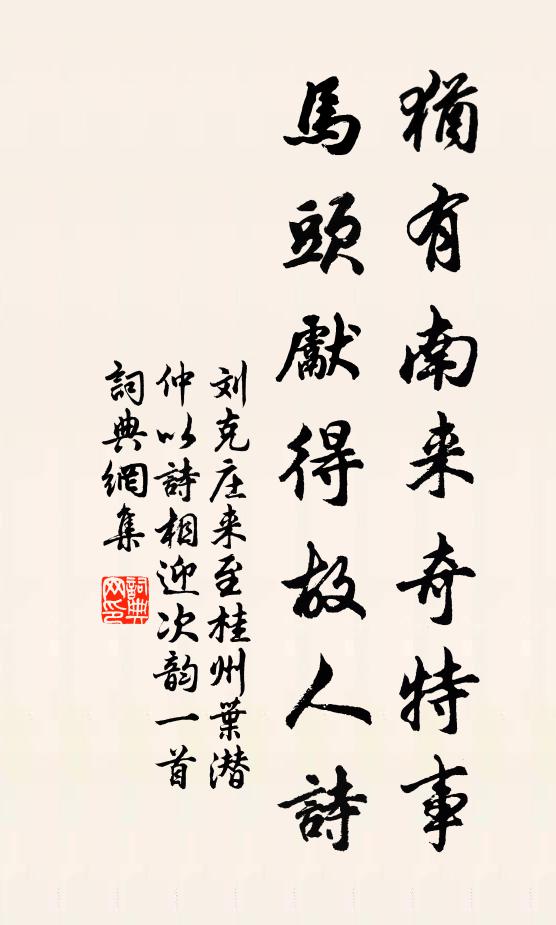 猶有南来奇特事
馬頭獻得故人詩
刘克庄来至桂州葉潜
仲以詩相迎次韵一首
詞典網集
詞典网印